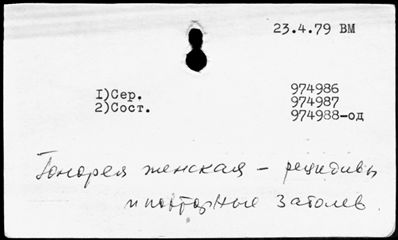 23.4.79 ВМ
1)Сер. 974986
2)Сост. 974987
974988-од
Гонорея женская – рецидивы
и повторные заболев.